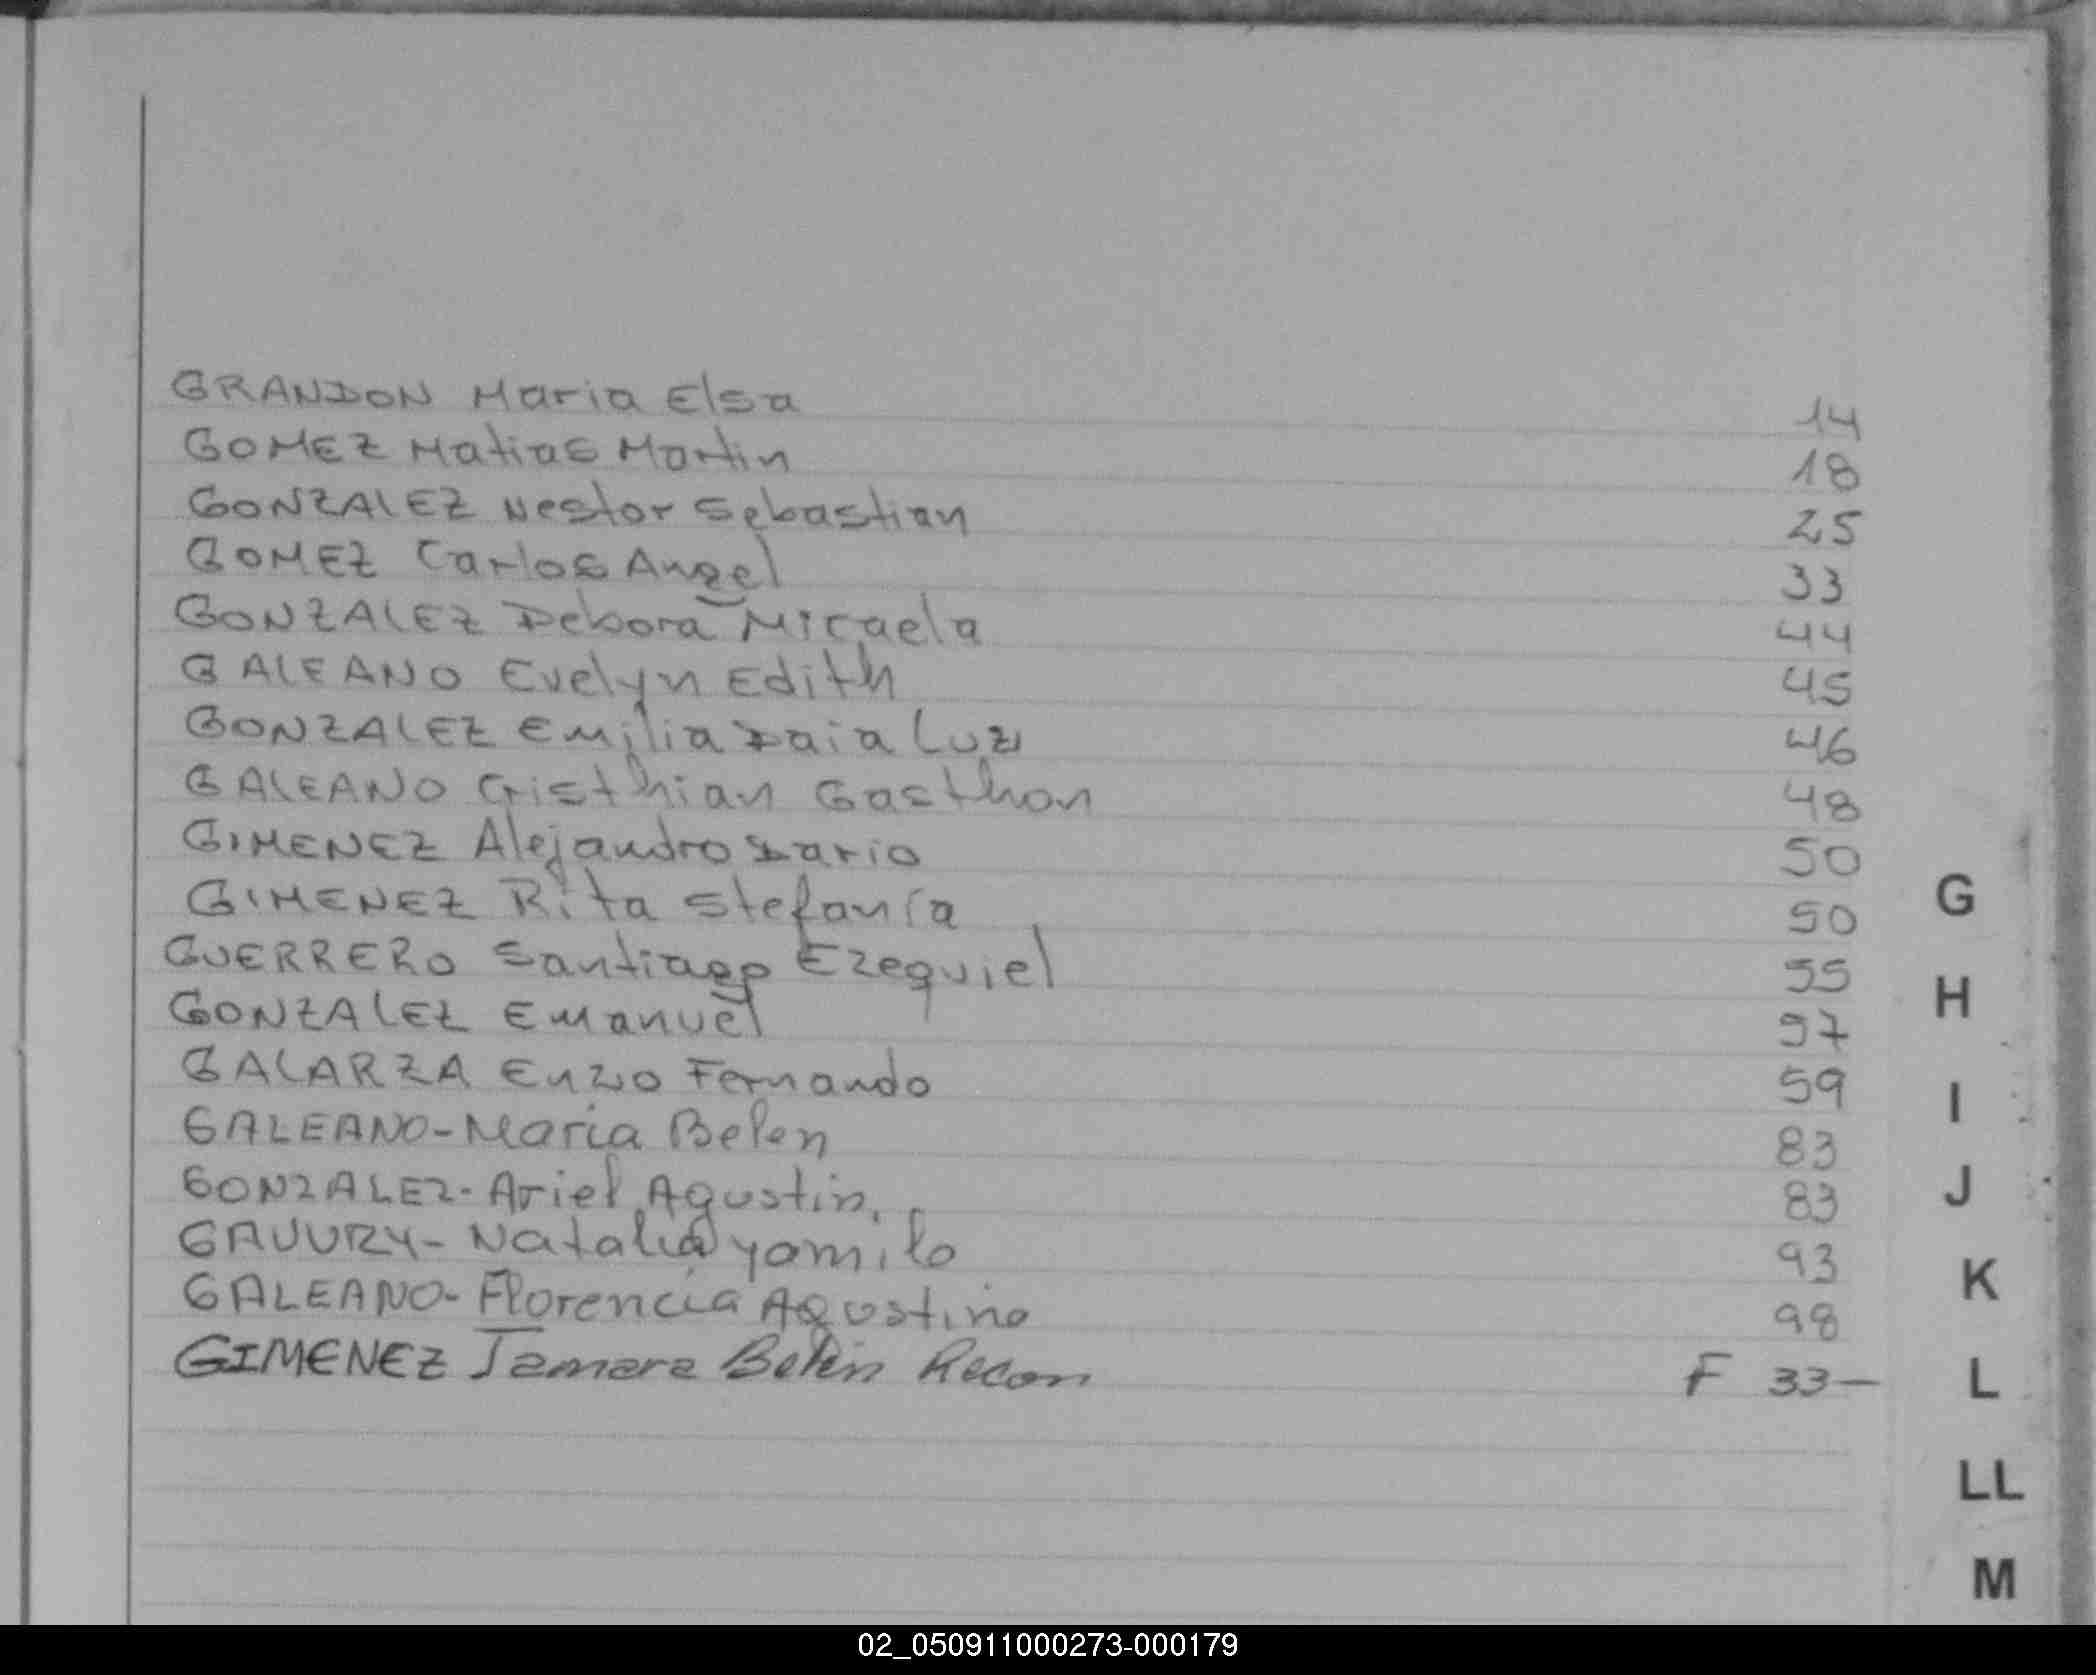 GRANDON Maria Elsa 14
GOMEZ Matias Martin 18
GONZALEZ Nestor Sebastian 25
GOMEZ Carlos Angel 33
GONZALEZ Debora Micaela 44
GALEANO Evelyn Edith 45
GONZALEZ Emilia Daia Luz 46
GALEANO Cristhian Gasthon 48
GIMENEZ Alejandro Dario 50
GIMENEZ Rita Stefanía 50
G
GUERRERO Santiago Ezequiel 55
H
GONZALEZ Emanuel 57
GALARZA Enzo Fernando 59
I
GALEANO-Maria Belen 83
GONZALEZ-Ariel Agustin, 83
J
GAUURY-Natalia Yamila 93
K
GALEANO-Florencia Agustina 98
GIMENEZ Tamara Belén Recon F 33—
L
LL
M
02_050911000273-000179